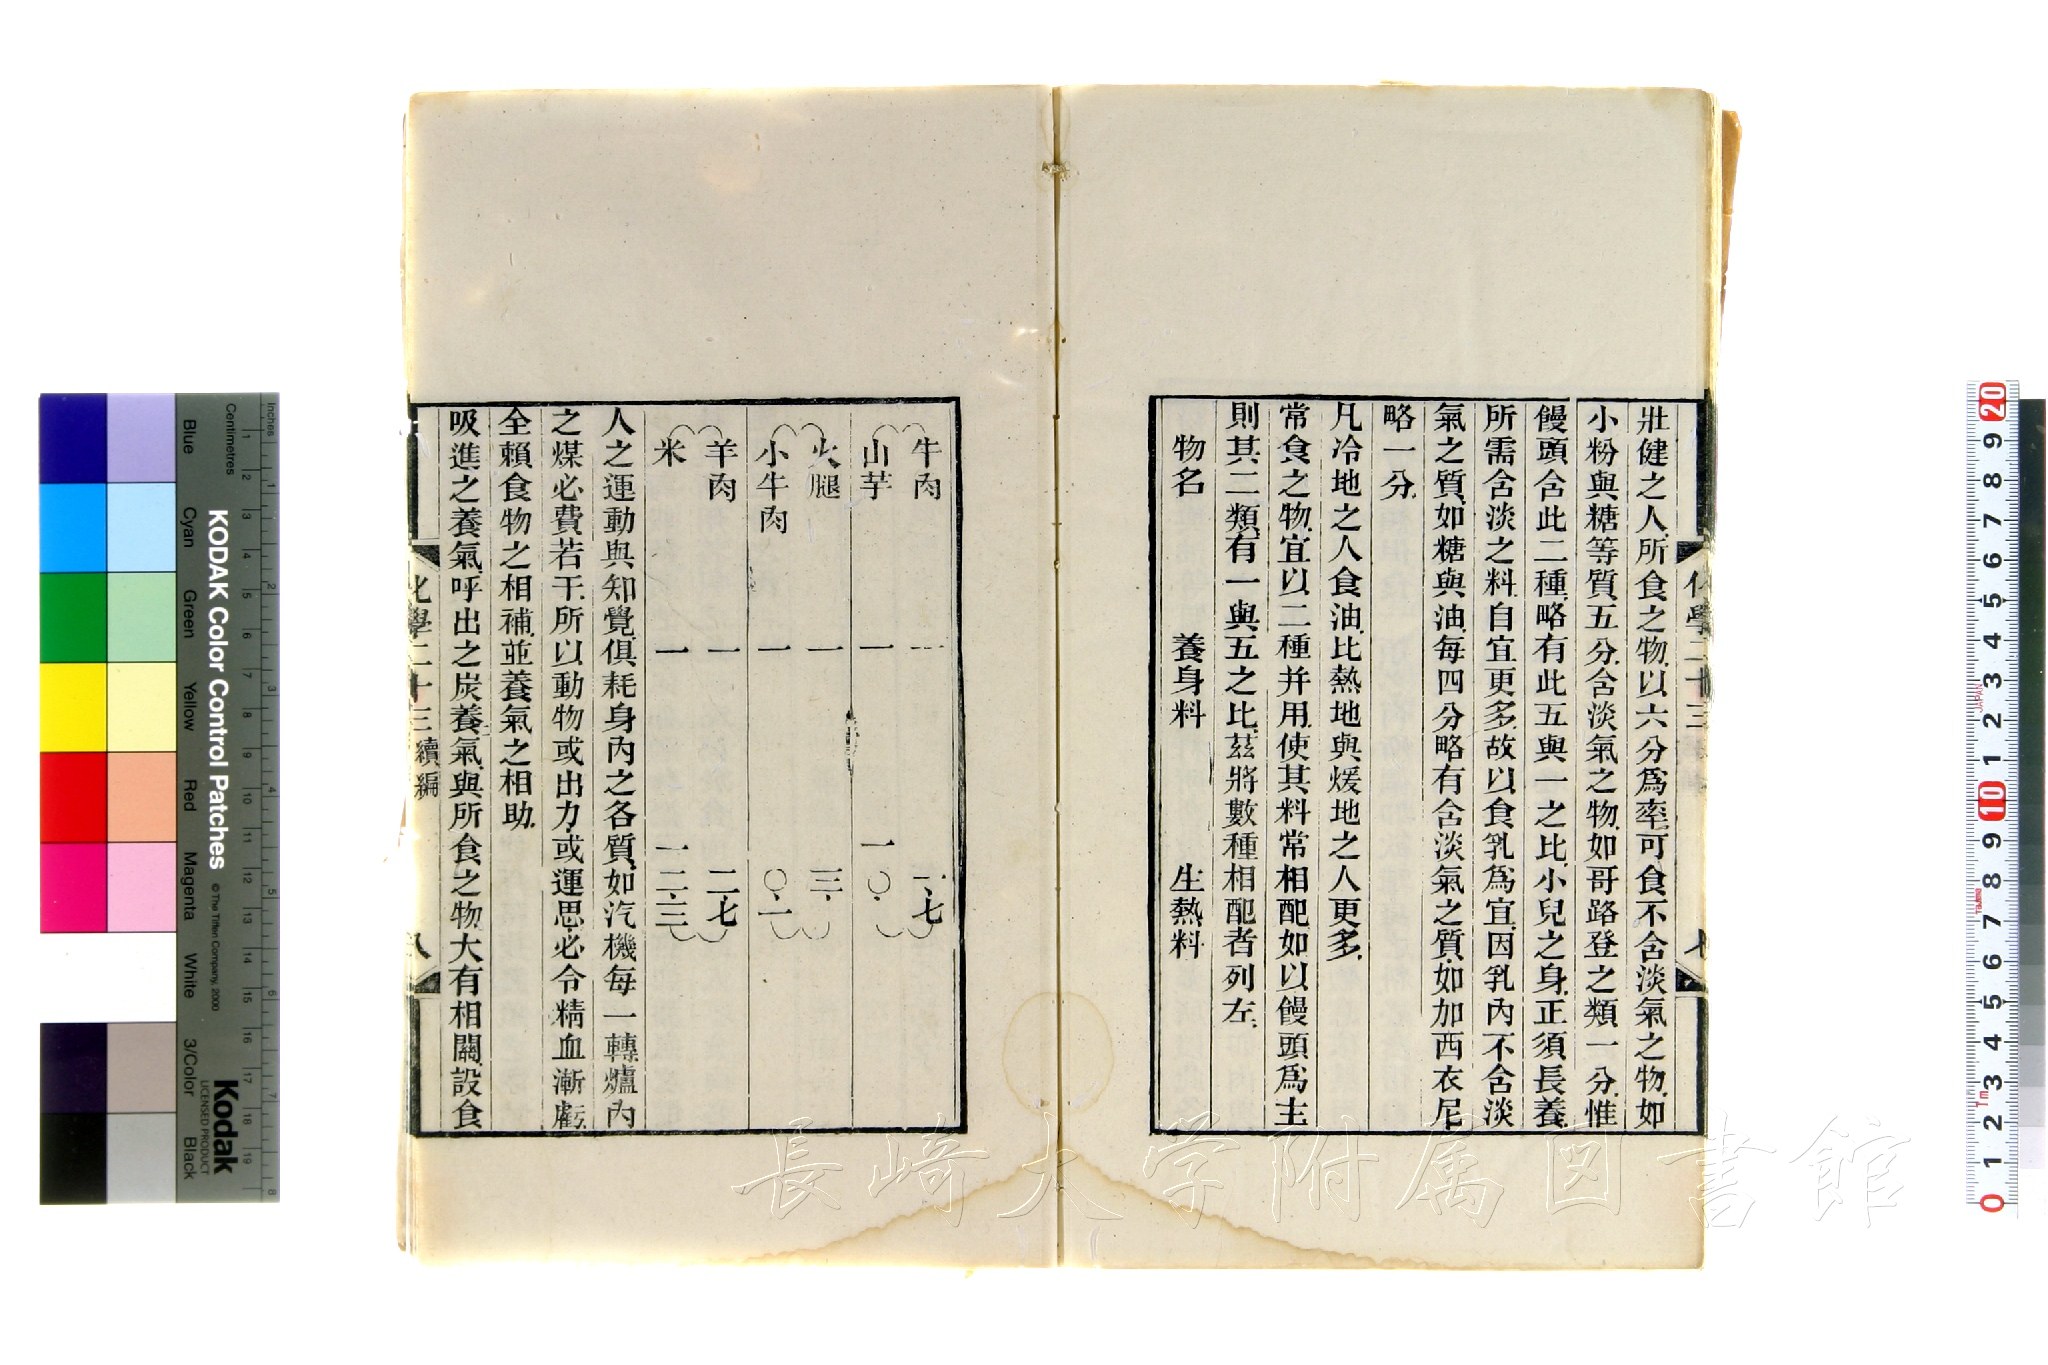 壯健之人所食之物以六分爲率可食不含淡氣之物如
小粉與糖等質五分含淡氣之物如哥路登之類一分惟
饅頭含此二種略有此五與一之比小兒之身正須長養
所需含淡之料自宜更多故以食乳爲宜因乳內不含淡
氣之質如糖與油每四分略有含淡氣之質如加西衣尼
略一分
凡冷地之人食油比熱地與煖地之人更多
常食之物宜以二種并用使其料常相配如以饅頭爲主
則其二類有一與五之比茲將數種相配者列左
物名 養身料 生熱料
牛肉 一 一、七
山芋 一 一〇、
火腿 一 三、
小牛肉 一 〇、一
羊肉 一 二、七
米 一 一二、三
人之運動與知覺俱耗身內之各質如汽機每一轉爐內
之煤必費若干所以動物或出力或運思必令精血漸虧
全賴食物之相補並養氣之相助
吸進之養氣呼出之炭養氣與所食之物大有相關設食
化學二十三續編
八
長崎大学附属図書館
KODAK Color Control Patches
© The Tiffen Company, 2000
Kodak
LICENSED PRODUCT
Inches
Centimetres
Blue
Cyan
Green
Yellow
Red
Magenta
White
3/Color
Black